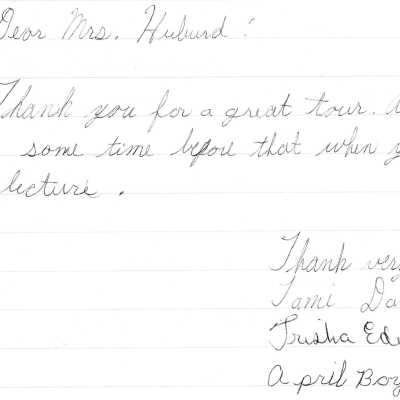 Dear Mrs. Huburd!
Thank you for a great tour.
some time before that when
lecture.
Thank very
Tami Da
Trisha Ed
April Boy